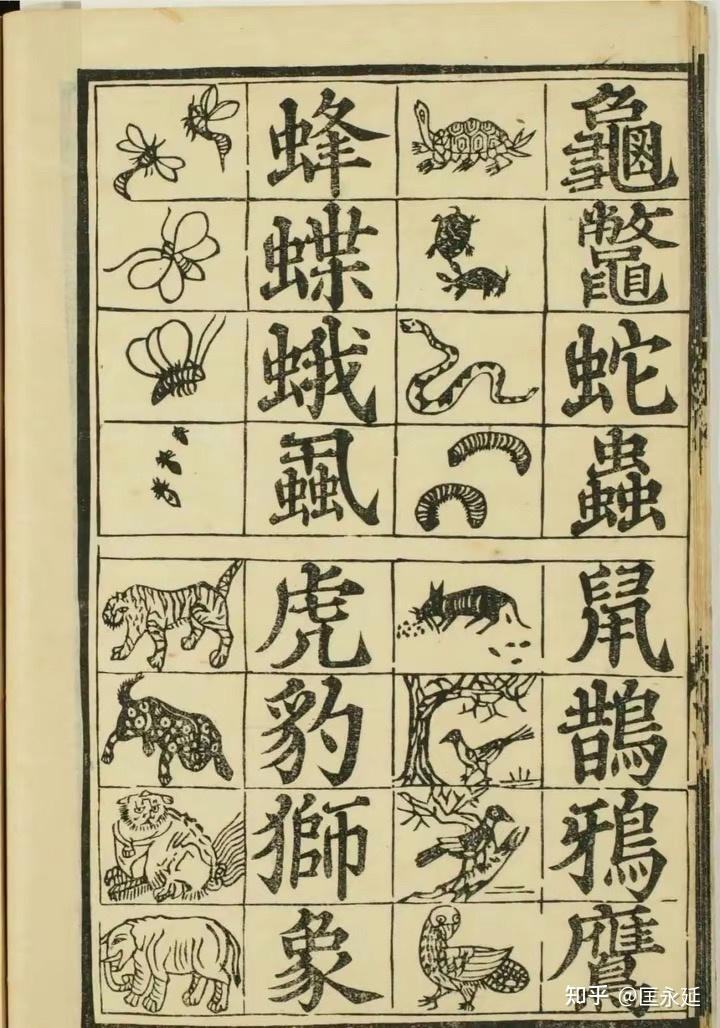 龜鼈蛇蟲
蜂蝶蛾蝨
鼠鵲鴉鷹
虎豹獅象
知乎 @匡永延